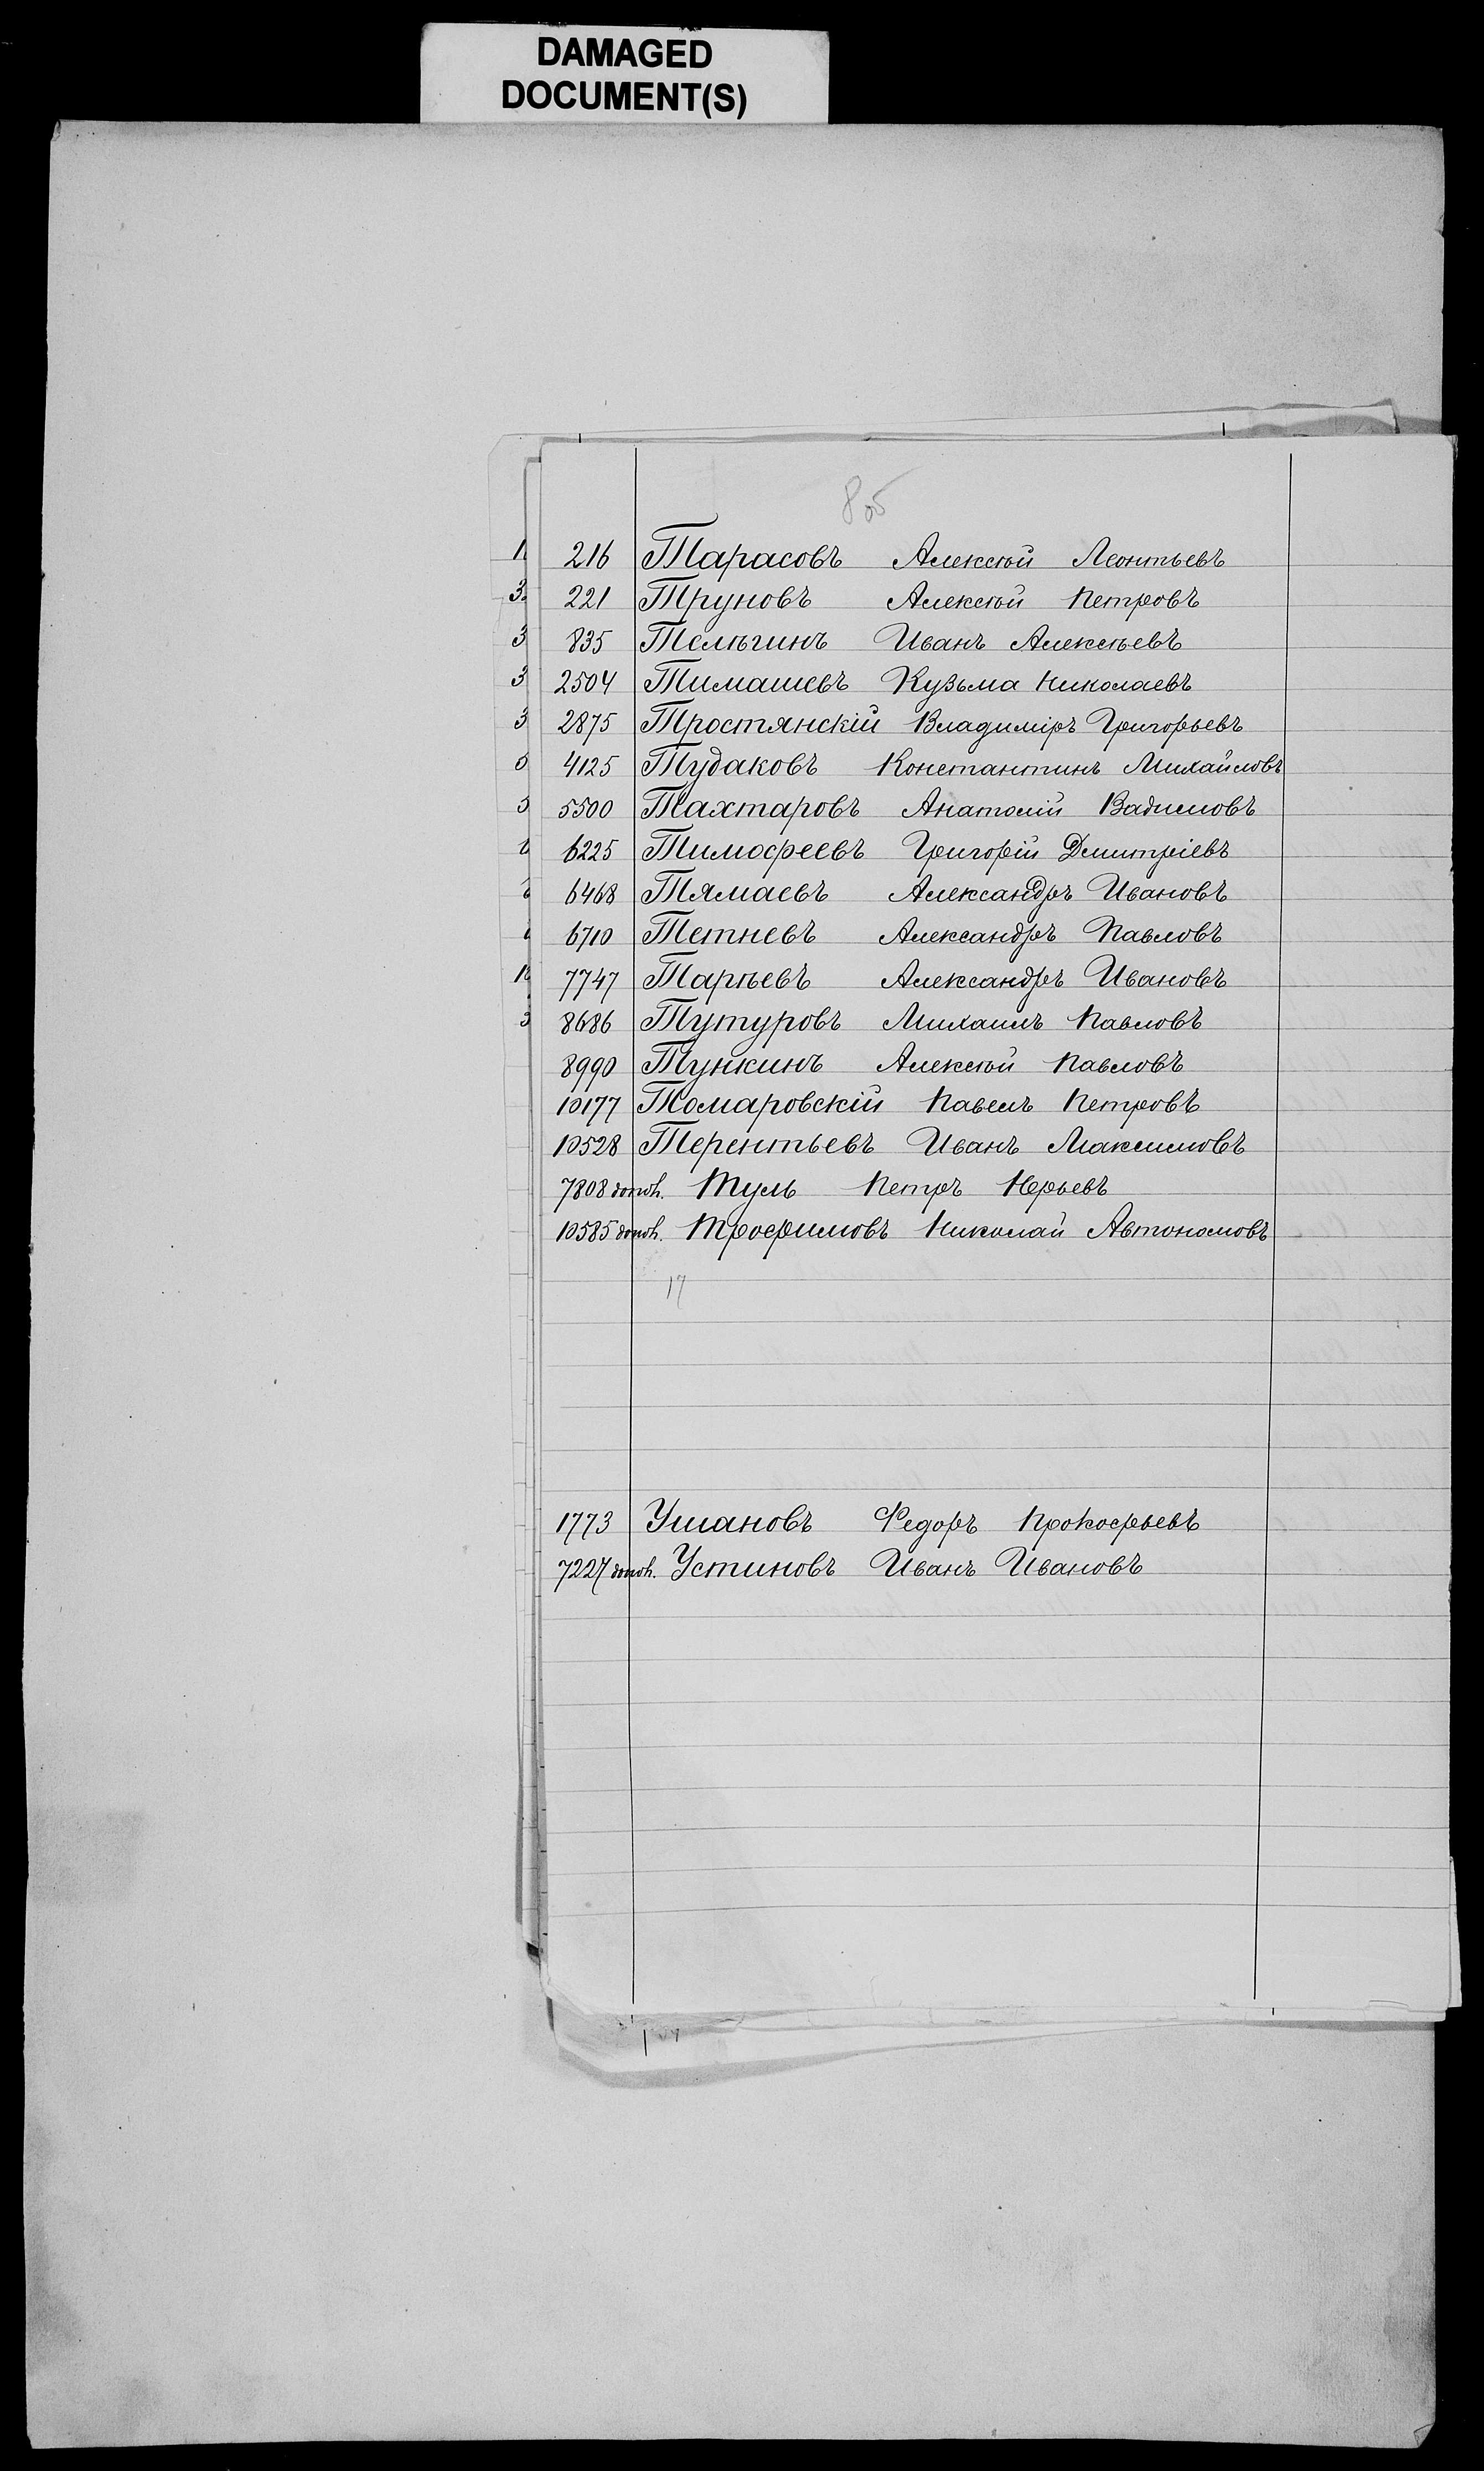 DAMAGED
DOCUMENT(S)
85
216 Тарасовъ Алексѣй Леонтьевъ
221 Труновъ Алексѣй Петровъ
835 Телѣгинъ Иванъ Алексѣевъ
2504 Тимашевъ Кузьма Николаевъ
2875 Тростянскій Владиміръ Григорьевъ
4125 Тудаковъ Константинъ Михайловъ
5500 Тахтаровъ Анатолій Вадимовъ
6225 Тимофеевъ Григорій Дмитріевъ
6468 Тямаевъ Александръ Ивановъ
6710 Тетневъ Александръ Павловъ
7747 Тарѣевъ Александръ Ивановъ
8686 Тутуровъ Михаилъ Павловъ
8990 Тункинъ Алексѣй Павловъ
10177 Томаровскій Павелъ Петровъ
10528 Терентьевъ Иванъ Максимовъ
7808 Туль Петръ Юрьевъ
10585 Трофимовъ Николай Автономовъ
17
1773 Улановъ Федоръ Прокофьевъ
7227 Устиновъ Иванъ Ивановъ